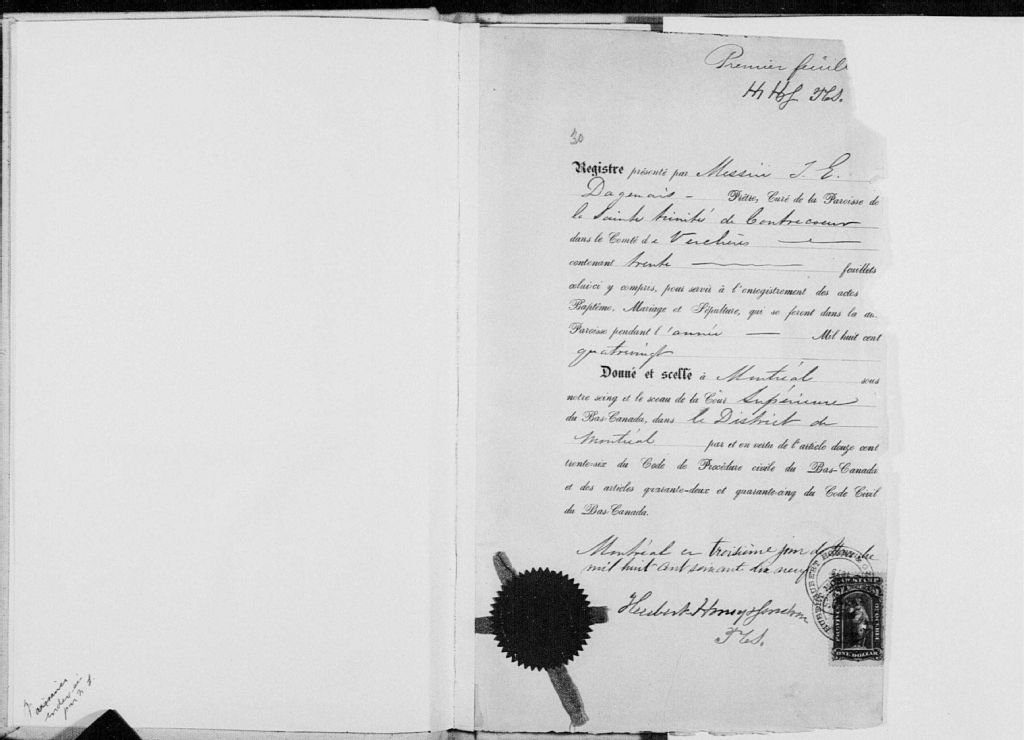 Premier feuil
30
Registre présenté par Messire J. E.
Dagenais - Prêtre, Curé de la Paroisse de
la Sainte trinité de Contrecoeur
dans le Comté de Verchères
contenant trente feuillets
celui-ci y compris, pour servir à l'enregistrement des actes
Baptême, Mariage et Sépulture, qui se feront dans la du.
Paroisse pendant l'année Mil huit cent
quatrevingt
Donné et scellé à Montréal sous
notre seing et le sceau de la Cour Supérieure
du Bas-Canada, dans le District de
Montréal par et en vertu de l'article douze cent
trente-six du Code de Procédure civile du Bas-Canada
et des articles quarante-deux et quarante-cinq du Code Civil
du Bas-Canada.
Montréal ce troisième jour de
mil huit cent soixant dix neuf
LAW STAMP
ONE DOLLAR